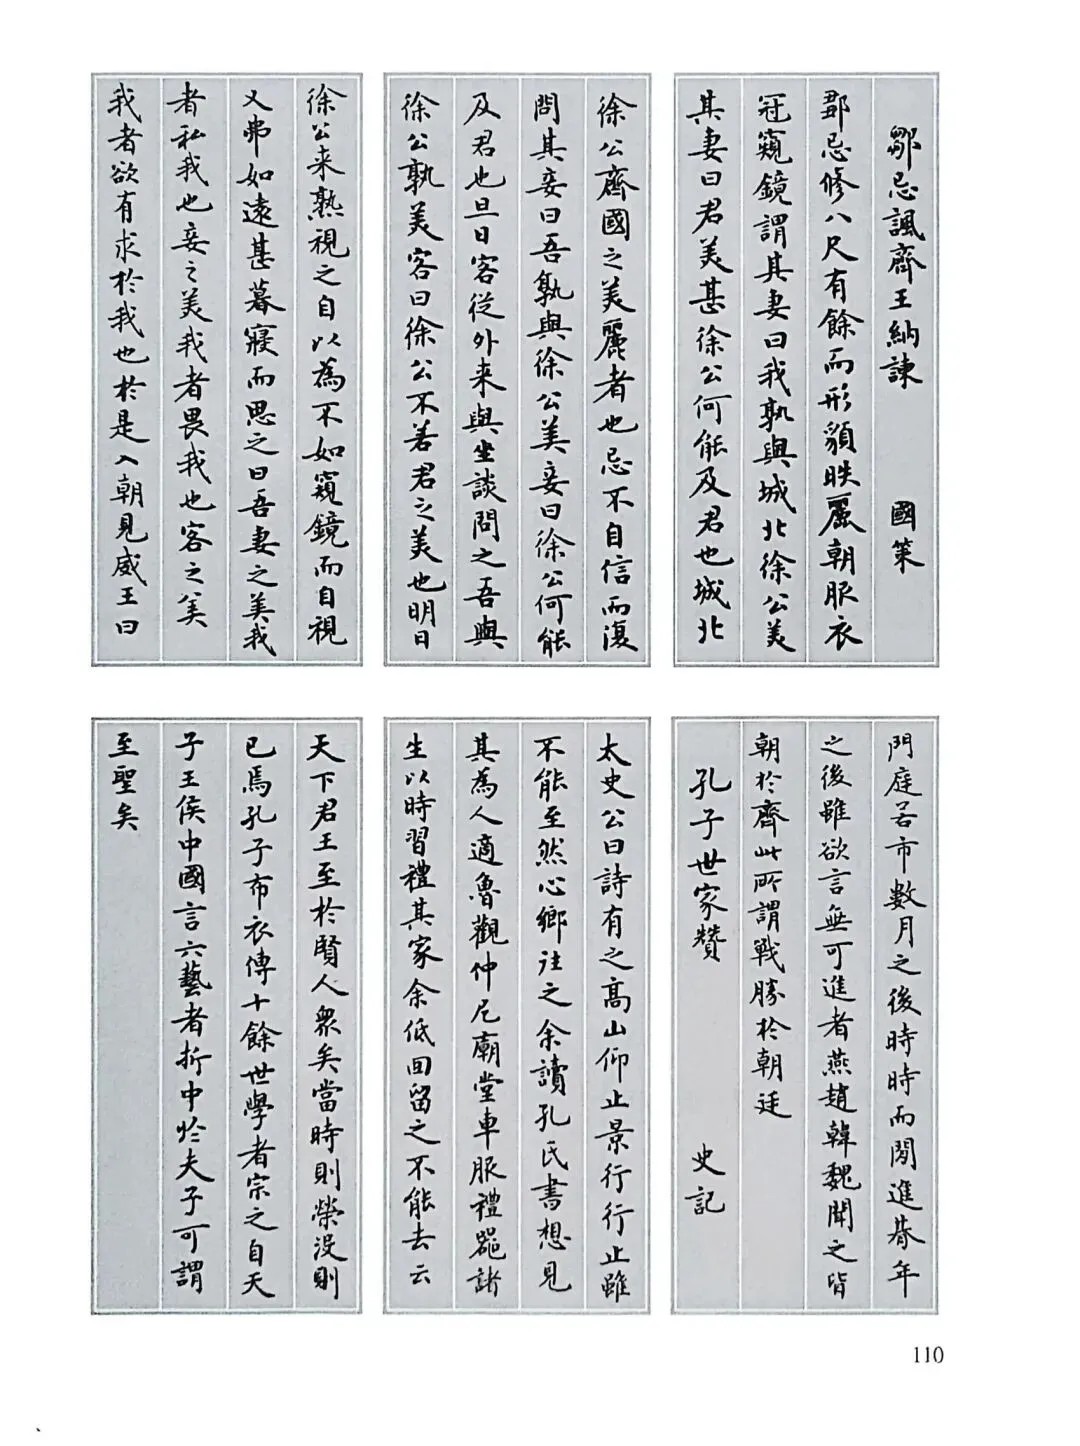 鄒忌諷齊王納諫 國策
鄒忌修八尺有餘而形貌昳麗朝服衣
冠窺鏡謂其妻曰我孰與城北徐公美
其妻曰君美甚徐公何能及君也城北
徐公齊國之美麗者也忌不自信而復
問其妾曰吾孰與徐公美妾曰徐公何能
及君也旦日客從外来與坐談問之吾與
徐公孰美客曰徐公不若君之美也明日
徐公来熟視之自以為不如窺鏡而自視
又弗如遠甚暮寢而思之曰吾妻之美我
者私我也妾之美我者畏我也客之美
我者欲有求於我也於是入朝見威王曰
門庭若市數月之後時時而閒進朞年
之後雖欲言無可進者燕趙韓魏聞之皆
朝於齊此所謂戰勝於朝廷
孔子世家贊 史記
太史公曰詩有之高山仰止景行行止雖
不能至然心鄉往之余讀孔氏書想見
其為人適魯觀仲尼廟堂車服禮器諸
生以時習禮其家余低回留之不能去云
天下君王至於賢人衆矣當時則榮沒則
已焉孔子布衣傳十餘世學者宗之自天
子王侯中國言六藝者折中於夫子可謂
至聖矣
110